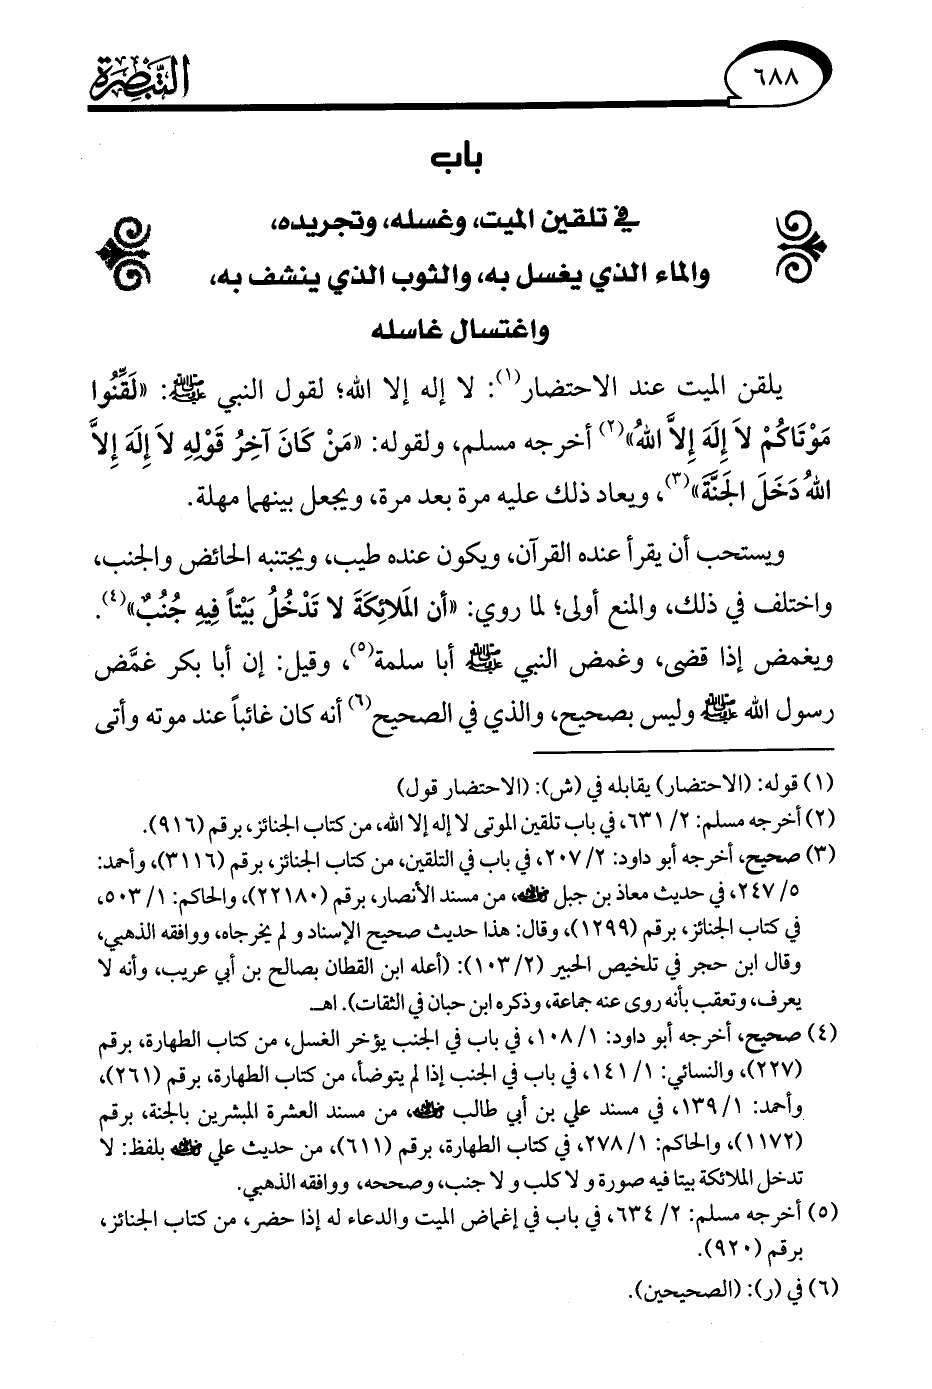 ٦٨٨
التبصرة
باب
في تلقين الميت، وغسله، وتجريده،
والماء الذي يغسل به، والثوب الذي ينشف به،
واغتسال غاسله
يلقن الميت عند الاحتضار(١): لا إله إلا الله؛ لقول النبي ﷺ: «لَقِّنُوا
مَوْتَاكُمْ لاَ إِلَهَ إِلاَّ اللهُ»(٢) أخرجه مسلم، ولقوله: «مَنْ كَانَ آخِرُ قَوْلِهِ لاَ إِلَهَ إِلاَّ
اللهُ دَخَلَ الجَنَّةَ»(٣)، ويعاد ذلك عليه مرة بعد مرة، ويجعل بينهما مهلة.
ويستحب أن يقرأ عنده القرآن، ويكون عنده طيب، ويجتنبه الحائض والجنب،
واختلف في ذلك، والمنع أولى؛ لما روي: «أن المَلائِكَةَ لا تَدْخُلُ بَيْتاً فِيهِ جُنُبٌ»(٤).
ويغمض إذا قضى، وغمض النبي ﷺ أبا سلمة(٥)، وقيل: إن أبا بكر غمَّض
رسول الله ﷺ وليس بصحيح، والذي في الصحيح(٦) أنه كان غائباً عند موته وأتى
(١) قوله: (الاحتضار) يقابله في (ش): (الاحتضار قول)
(٢) أخرجه مسلم: ٢/ ٦٣١، في باب تلقين الموتى لا إله إلا الله، من كتاب الجنائز، برقم (٩١٦).
(٣) صحيح، أخرجه أبو داود: ٢/ ٢٠٧، في باب في التلقين، من كتاب الجنائز، برقم (٣١١٦)، وأحمد:
٥/ ٢٤٧، في حديث معاذ بن جبل رضي الله عنه، من مسند الأنصار، برقم (٢٢١٨٠)، والحاكم: ١/ ٥٠٣،
في كتاب الجنائز، برقم (١٢٩٩)، وقال: هذا حديث صحيح الإسناد و لم يخرجاه، ووافقه الذهبي،
وقال ابن حجر في تلخيص الحبير (٢/ ١٠٣): (أعله ابن القطان بصالح بن أبي عريب، وأنه لا
يعرف، وتعقب بأنه روى عنه جماعة، وذكره ابن حبان في الثقات). اهـ
(٤) صحيح، أخرجه أبو داود: ١/ ١٠٨، في باب في الجنب يؤخر الغسل، من كتاب الطهارة، برقم
(٢٢٧)، والنسائي: ١/ ١٤١، في باب في الجنب إذا لم يتوضأ، من كتاب الطهارة، برقم (٢٦١)،
وأحمد: ١/ ١٣٩، في مسند علي بن أبي طالب رضي الله عنه، من مسند العشرة المبشرين بالجنة، برقم
(١١٧٢)، والحاكم: ١/ ٢٧٨، في كتاب الطهارة، برقم (٦١١)، من حديث علي رضي الله عنه بلفظ: لا
تدخل الملائكة بيتا فيه صورة و لا كلب و لا جنب، وصححه، ووافقه الذهبي.
(٥) أخرجه مسلم: ٢/ ٦٣٤، في باب في إغماض الميت والدعاء له إذا حضر، من كتاب الجنائز،
برقم (٩٢٠).
(٦) في (ر): (الصحيحين).